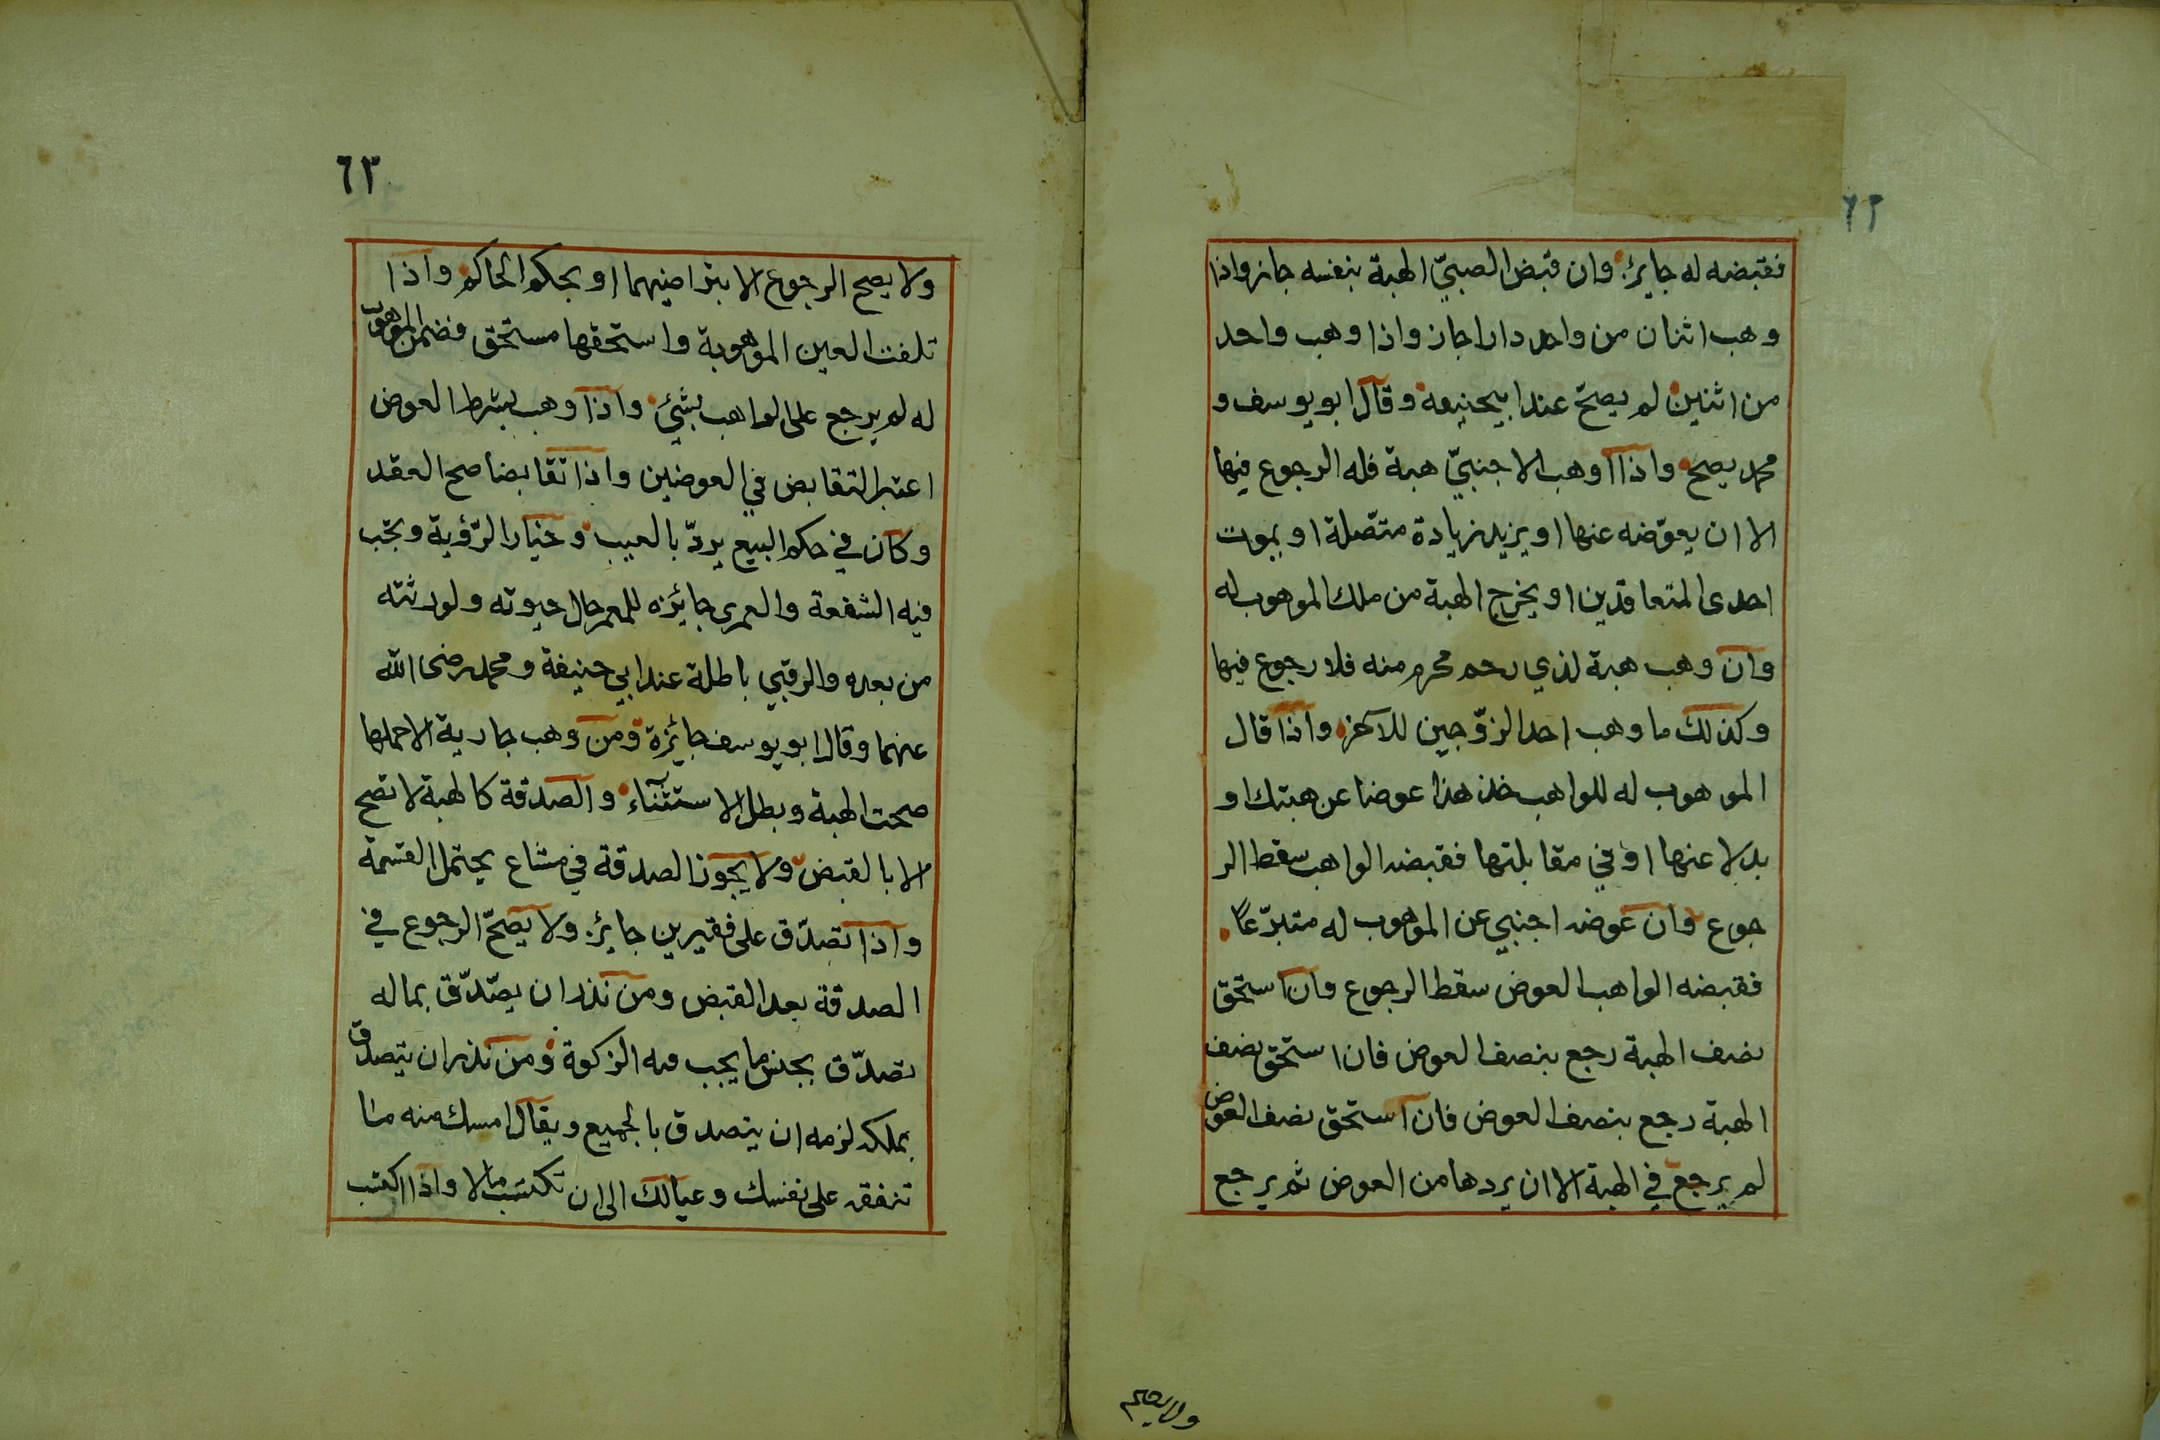 ٦٢
فقبضه له جايز وان قبض الصبيّ الهبة بنفسه جاز واذا
وهب اثنان من واحد دارا جاز واذا وهب واحد
من اثنين لم يصحّ عند ابيحنيفه وقال ابو يوسف و
محمد يصح واذا اوهب الاجنبيّ هبة فله الرجوع فيها
الا ان يعوّضه عنها او يزيد زيادة متّصلة او بموت
احدى المتعاقدين او يخرج الهبة من ملك الموهوب له
وان وهب هبة لذي رحم محرم منه فلا رجوع فيها
وكذلك ما وهب احد الزوّجين للآخر واذا قال
الموهوب له للواهب خذ هذا عوضا عن هبتك او
بدلا عنها او في مقابلتها فقبضه الواهب سقط الر
جوع وان عوضه اجنبي عن الموهوب له متبرّعًا
فقبضه الواهب العوض سقط الرجوع وان استحق
نصف الهبة رجع بنصف العوض فان استحق نصف
الهبة رجع بنصف العوض فان استحق نصف العوض
لم يرجع في الهبة الا ان يردها من العوض ثم يرجع
ولا يصح
٦٣
ولا يصح الرجوع الا بتراضيهما او بحكم الحاكم واذا
تلفت العين الموهوبة واستحقها مستحق فضمن الموهوب
له لم يرجع على الواهب بشيئ واذا وهب بشرط العوض
اعتبر التقابض في العوضين واذا تقابضا صح العقد
وكان في حكم البيع يردّ بالعيب وخيار الرّؤية وتجب
فيه الشفعة والعمرى جائزه للمعمر حال حيوته ولورثته
من بعده والرقبي باطلة عند ابي حنيفة ومحمد رضى الله
عنهما وقال ابو يوسف جائزة ومن وهب جارية الا حملها
صحت الهبة وبطل الاستثنآء والصدقة كالهبة لا تصح
الا بالقبض ولا يجوز الصدقة في مشاع يحتمل القسمة
واذا تصدّق على فقيرين جايز ولا يصحّ الرجوع في
الصدقة بعد القبض ومن نذر ان يصّدّق بماله
تصدّق بجنس ما يجب فيه الزكوة ومن نذر ان يتصدق
بملكه لزمه ان يتصدق بالجميع ويقال امسك منه ما
تنفقه على نفسك وعيالك الى ان تكتسب مالا واذا اكتسب